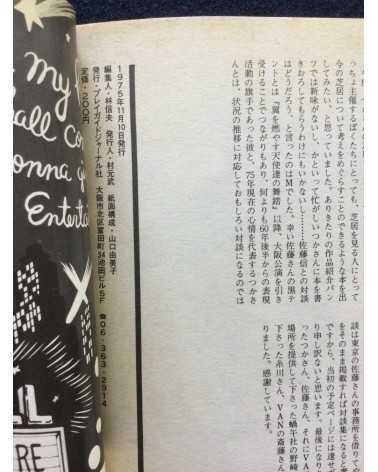 っちょ主催するぼくたちにとっても、芝居を見る人にとって
今の芝居について考えをめぐらすことのできるような本を出
してみたい、と思っていました。ありきたりの作品紹介パン
フでは新味がないし、かといって忙がしいつかさんに本を書
きおろしてもらうわけにもいかないし……佐藤信との対談
はどうだろう、と言ったのはMでした。幸い佐藤さんの黒テ
ントとは『翼を燃やす天使達の舞踏』以降、大阪公演を引き
受けることでつながりもあり、何よりも60年後半からの表現
活動の旗手であった彼と、75年現在の心情を代表するつかさ
んとは、状況の推移に対応しておもしろい対談になるのでは
談は東京の佐藤さんの事務所を借りて
をそのまま掲載すれば対談集になると
ですから、当初の予定ページには達せ
り申し訳ないと思います。最後になり
ったつかさん、佐藤さん、それにVA
場所を提供して下さった蝸牛社の野
下さった糸川さん、VANの斎藤さん
りました。感謝しています。
1975年11月10日発行
編集人・林信夫 発行人・村元武 紙面構成・山口由美子
発行・プレイガイドジャーナル社 大阪市北区富田町34池田ビル5F ☎06-363-2914
定価・200円
my
all co
onna g
Enterta
LL
RE